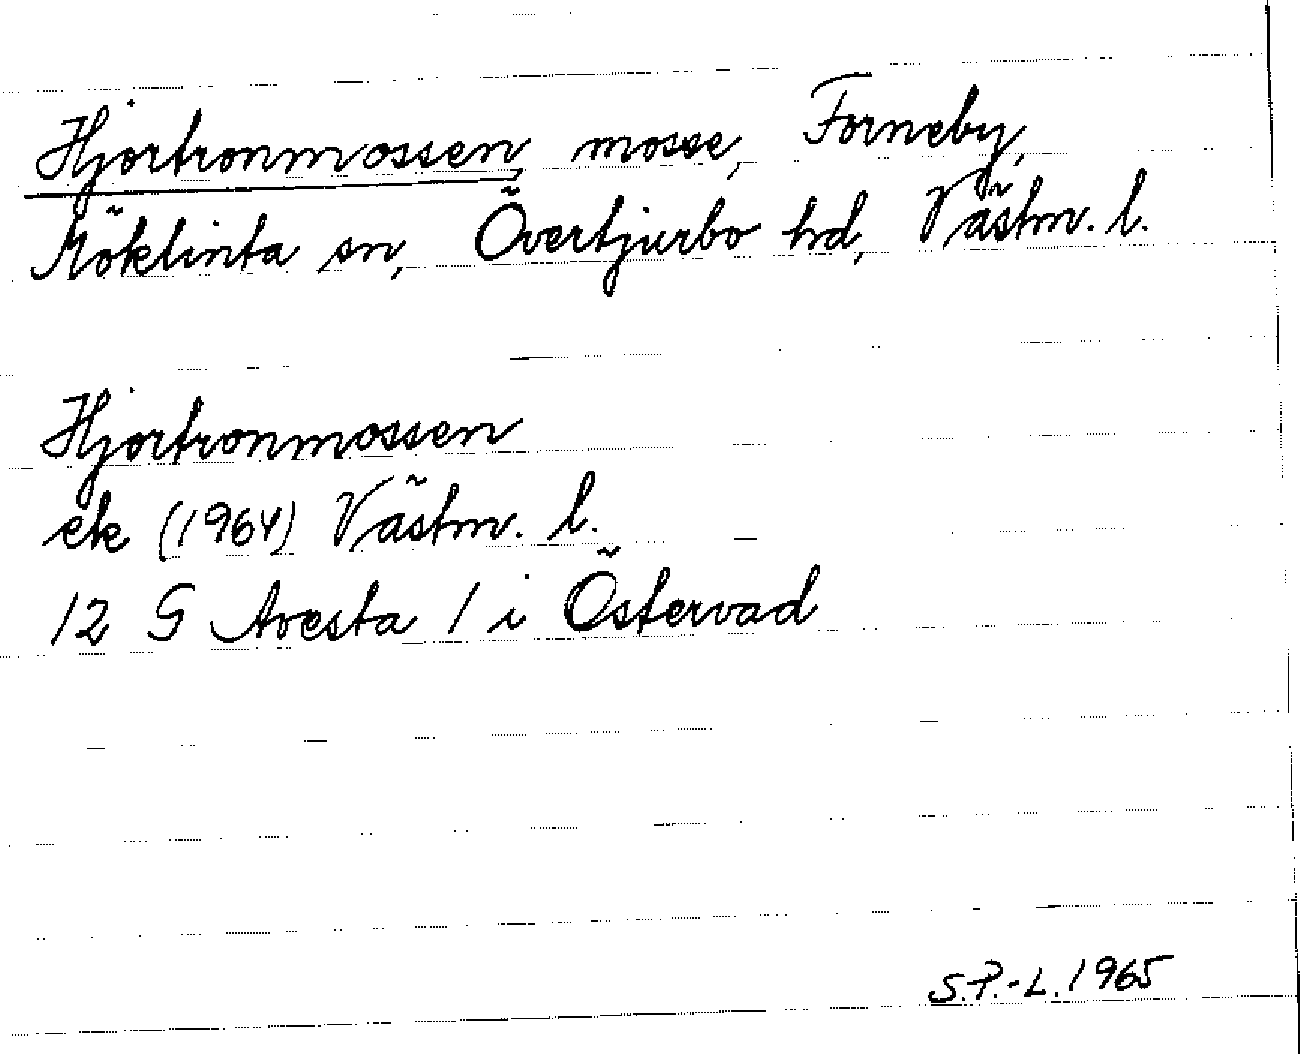 Hjortronmossen, mosse, Forneby,
Möklinta sn, Övertjurbo hd, Västm. l.
Hjortronmossen
ek (1964) Västm. l.
12 G Avesta 1 i Östervad
S.P.-L. 1965